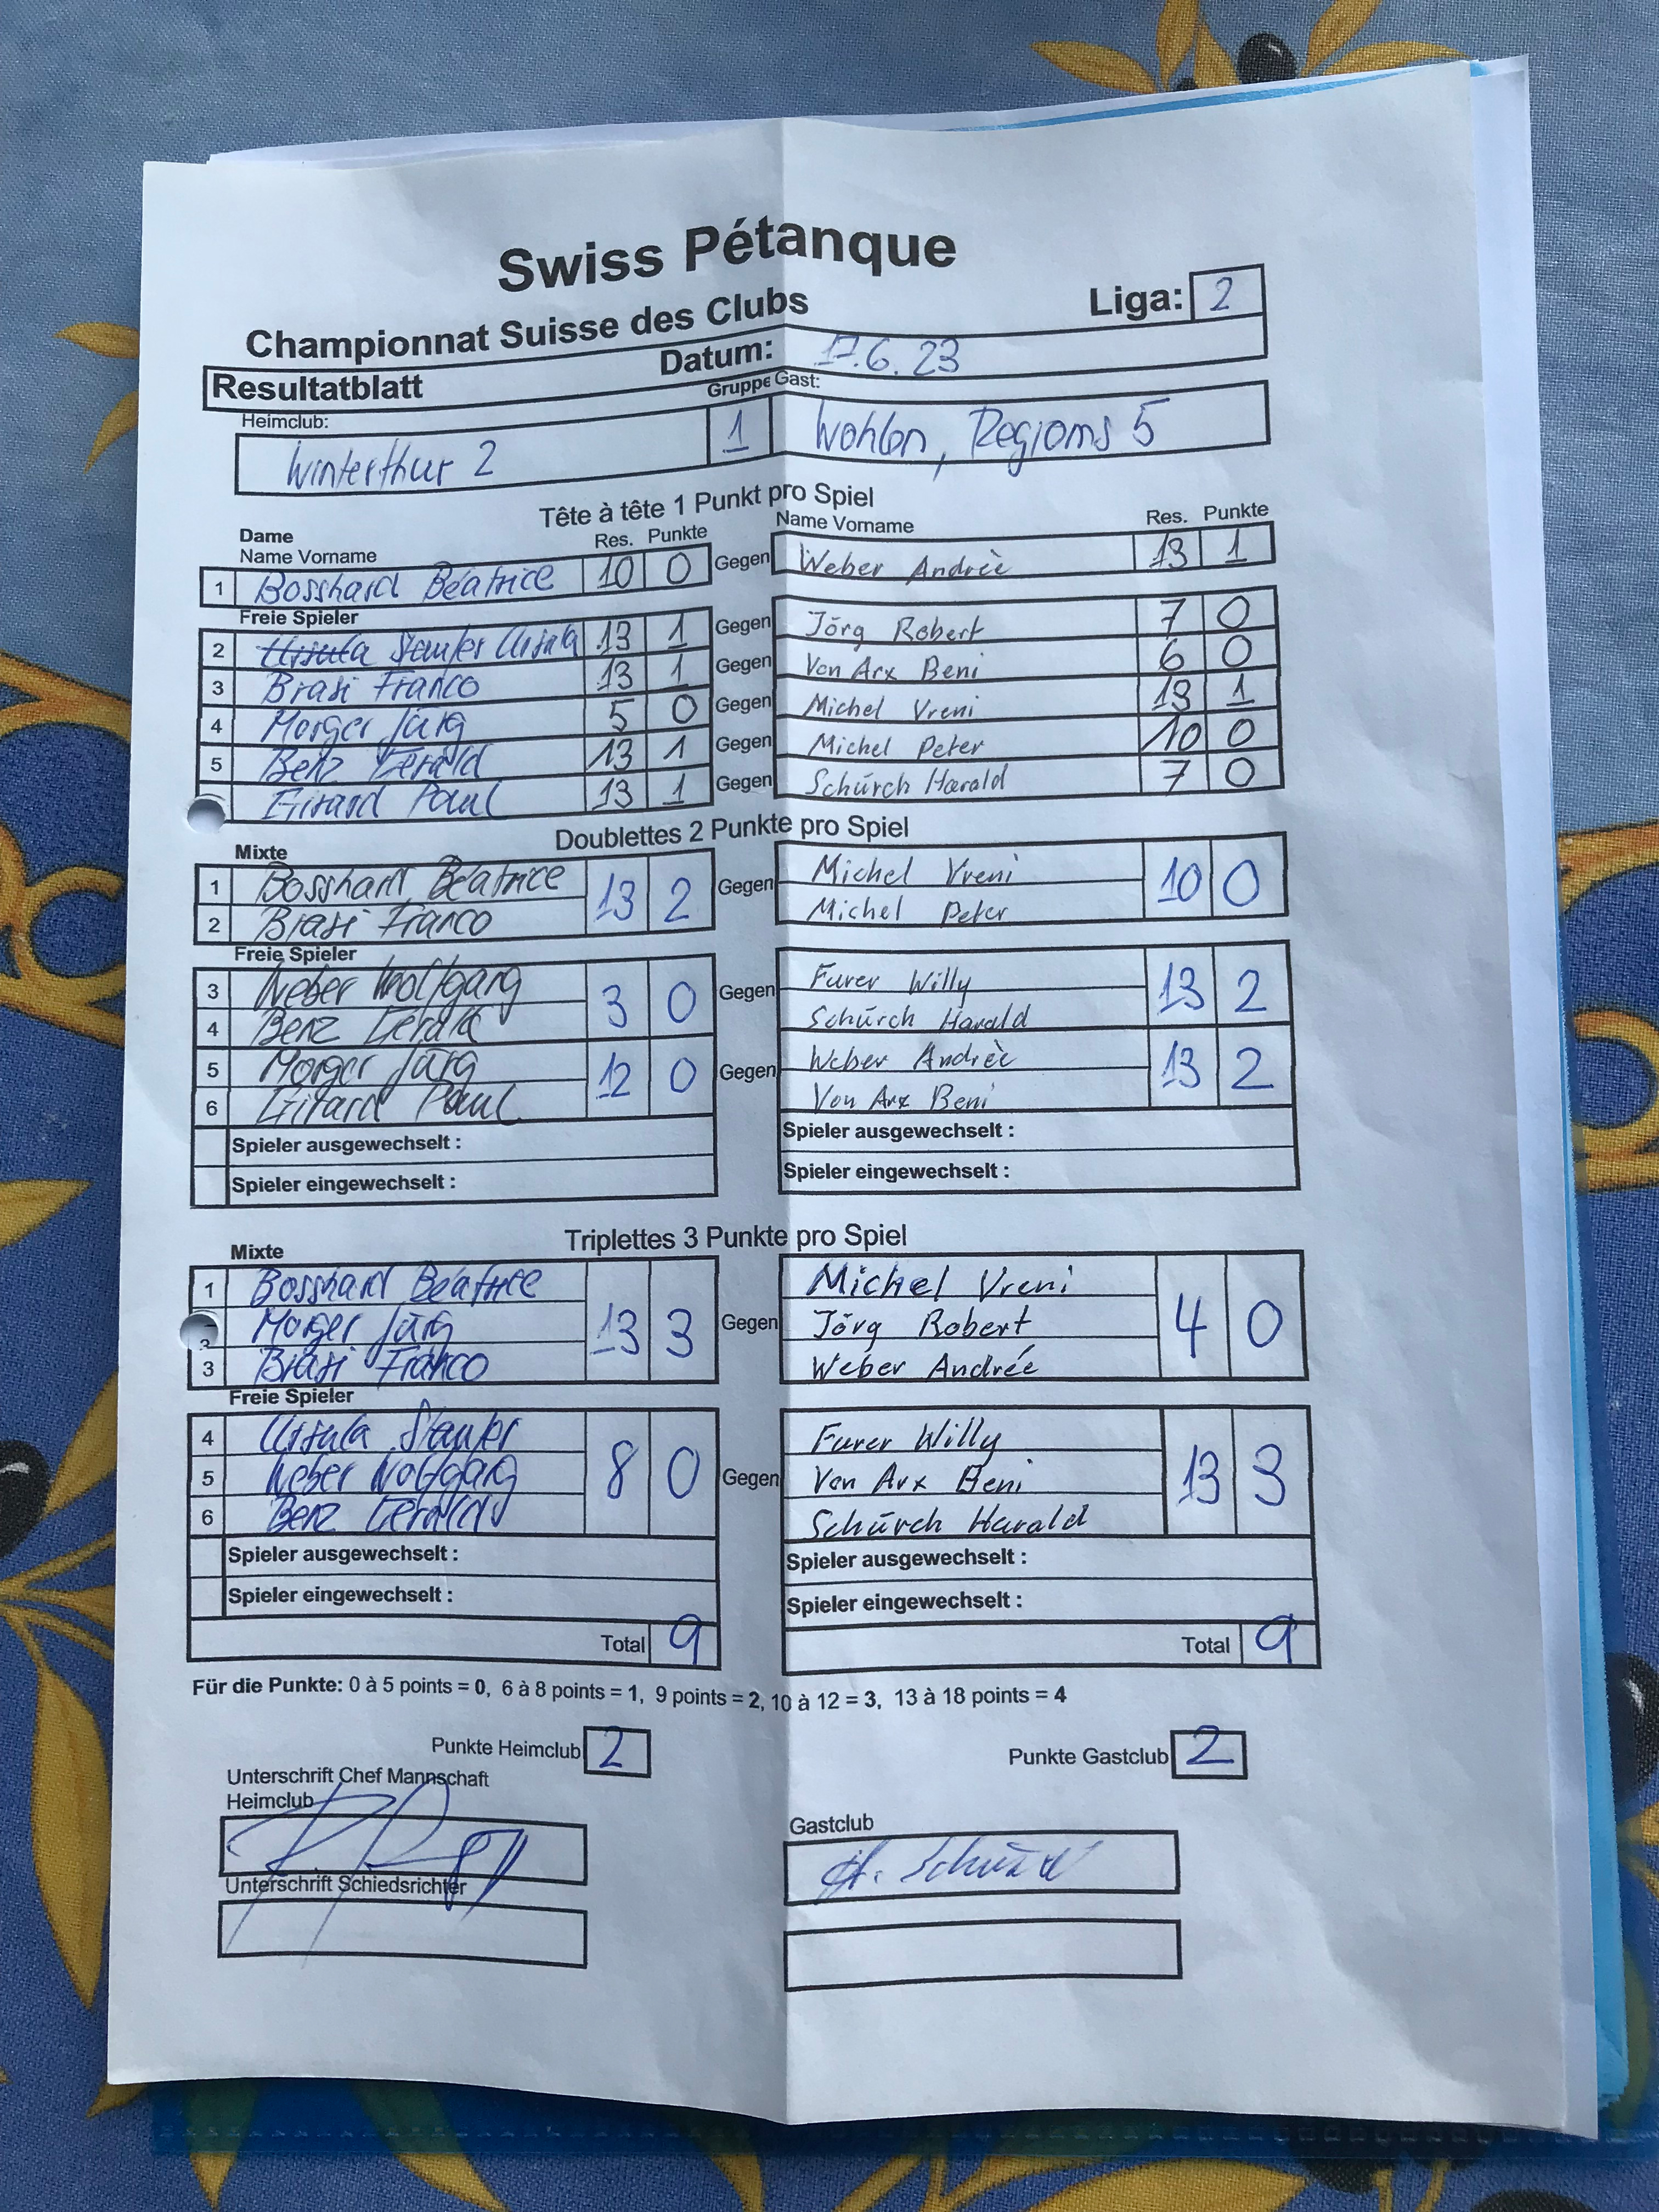 Swiss Pétanque
Championnat Suisse des Clubs Liga: 2
Resultatblatt Datum: 17.6.23
Heimclub: Gruppe Gast:
Winterthur 2 1 Wohlen, Regioms 5
Tête à tête 1 Punkt pro Spiel
Dame
Name Vorname Res. Punkte Name Vorname Res. Punkte
1 Bosshard Béatrice 10 0 Gegen Weber Andrèe 13 1
Freie Spieler
2 Ursula Staufer Ursula 13 1 Gegen Jörg Robert 7 0
3 Brasi Franco 13 1 Gegen Von Arx Beni 6 0
4 Morger Jürg 5 0 Gegen Michel Vreni 13 1
5 Benz Gerald 13 1 Gegen Michel Peter 10 0
Girard Paul 13 1 Gegen Schürch Harald 7 0
Doublettes 2 Punkte pro Spiel
Mixte
1 Bosshard Béatrice 13 2 Gegen Michel Vreni 10 0
2 Brasi Franco Michel Peter
Freie Spieler
3 Weber Wolfgang 3 0 Gegen Furer Willy 13 2
4 Benz Gerald Schürch Harald
5 Morger Jürg 12 0 Gegen Weber Andrèe 13 2
6 Girard Paul Von Arx Beni
Spieler ausgewechselt : Spieler ausgewechselt :
Spieler eingewechselt : Spieler eingewechselt :
Triplettes 3 Punkte pro Spiel
Mixte
1 Bosshard Béatrice Michel Vreni
Morger Jürg 13 3 Gegen Jörg Robert 4 0
3 Brasi Franco Weber Andrée
Freie Spieler
4 Ursula Staufer Furer Willy
5 Weber Wolfgang 8 0 Gegen Von Arx Beni 13 3
6 Benz Gerald Schürch Harald
Spieler ausgewechselt : Spieler ausgewechselt :
Spieler eingewechselt : Spieler eingewechselt :
Total 9 Total 9
Für die Punkte: 0 à 5 points = 0, 6 à 8 points = 1, 9 points = 2, 10 à 12 = 3, 13 à 18 points = 4
Punkte Heimclub 2 Punkte Gastclub 2
Unterschrift Chef Mannschaft
Heimclub Gastclub
H. Schürch
Unterschrift Schiedsrichter